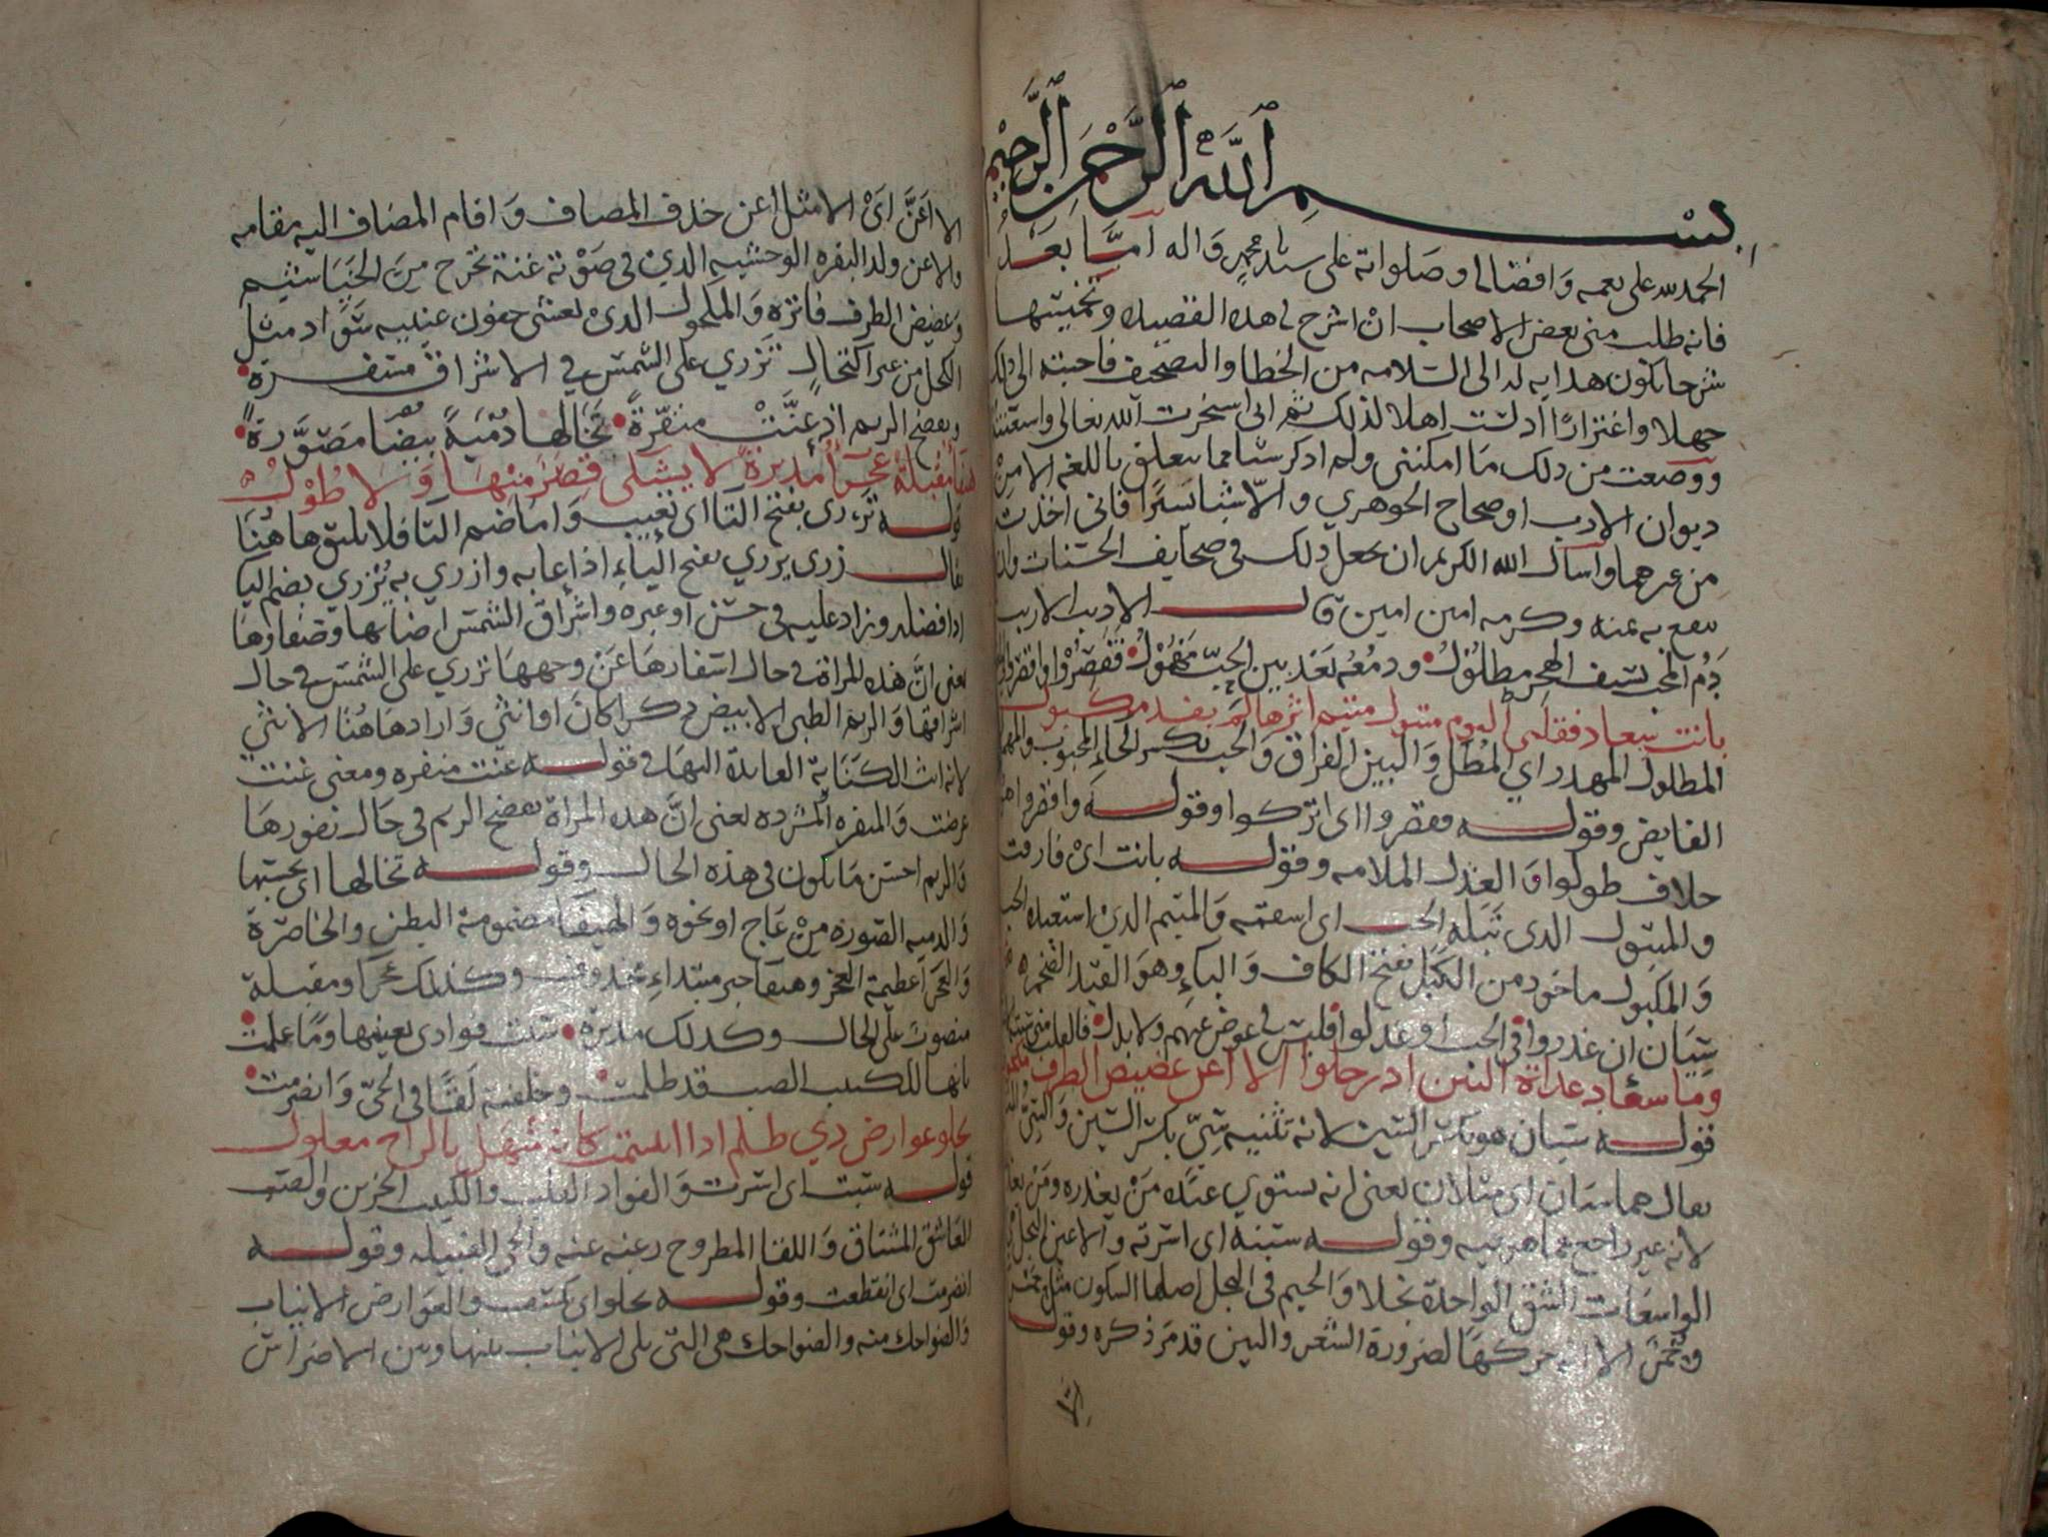 بسم الله الرحمن الرحيم
الحمد لله على نعمه وافضاله وصلواته على سيدنا محمد واله اما بعد
فانه طلب مني بعض الاصحاب ان اشرح له هذه القصيدة وتخميسها
شرحا يكون هداية له الى السلامه من الخطا والتصحيف فاجبته الى ذلك
جهلا واغترارا اذ لست اهلا لذلك ثم اني استخرت الله تعالى واستعنته
ووضعت من ذلك ما امكنني ولم اذكر شيا مما يتعلق باللغه الا من
ديوان الادب او صحاح الجوهري والا شيا يسيرا فاني اخذت
من غيرهما واسال الله الكريم ان يجعل ذلك في صحايف الحسنات وان
ينفع به بمنه وكرمه امين امين قال الاديب الاريب
دم المحب بسيف الهجر مطلول ودمعه بعد بين الحب مهمول فقصروا او اقصروا
بانت سعاد فقلبي اليوم متبول متيم اثرها لم يفد مكبول
المطلول المهدر اي المطل والبين الفراق والحب بكسر الحاء المحبوب والمهمول
الفايض وقوله فقصروا اي اتركوا وقوله واقصروا هو
خلاف طولوا والعذل الملامه وقوله بانت اي فارقت
والمتبول الذي تبله الحب اي اسقمه والمتيم الذي استعبده الحب
والمكبول ماخوذ من الكبل بفتح الكاف والباء وهو القيد الضخم
سيان ان عذروا في الحب او عذلوا فليس لي عوض عنهم ولا بدل فالقلب مني
وما سعاد غداة البين اذ رحلوا الا اغن غضيض الطرف مكحول
قوله سيان هو بكسر السين لانه تثنيه سي بكسر السين
يقال هما سيان اي مثلان يعني انه يستوي عنده من يعذره ومن
لانه غير راجع عما هو فيه وقوله سبته اي اسرته والاعين النجل
الواسعات الشق الواحدة نجلا والجيم في النجل اصلها السكون مثل حمر
وحمر الا انه حركها لضرورة الشعر والبين قد مر ذكره وقوله
الا اغن اي الا مثل اغن حذف المضاف واقام المضاف اليه مقامه
والاغن ولد البقره الوحشيه الذي في صوته غنة تخرج من الخياشيم
وغضيض الطرف فاتره والمكحول الذي يعشى جفون عينيه سواد مثل
الكحل من غير اكتحال تزري على الشمس في الاشراق مسفرة
وتفضح الريم اذ عنت منفرة تخالها دمية بيضا مصورة
هيفا مقبلة عجزا مدبرة لا يشتكى قصر منها ولا طول
قوله تزري بفتح التا اي تعيب واما ضم التا فلا يليق هاهنا
يقال زرى يزري بفتح الياء اذا عابه وازرى به يزري بضم اليا
اذا فضله وزاد عليه في حسن او غيره واشراق الشمس اضاتها وصفارها
يعني ان هذه المراة في حال اسفارها عن وجهها تزري على الشمس في حال
اشراقها والريم الظبي الابيض ذكرا كان او انثى وارادها هنا الانثى
لانه انث الكناية العايدة اليها في قوله عنت منفره ومعنى عنت
عرضت والمنفره المشرده يعني ان هذه المراة تفضح الريم في حال نفورها
والريم احسن ما يكون في هذه الحال وقوله تخالها اي تحسبها
والدميه الصورة من عاج او نحوه والهيفا مضمومة البطن والخاصرة
والعجزا عظيمة العجز وهيفا خبر مبتداء محذوف وكذلك عجزا ومقبلة
منصوب على الحال وكذلك مدبرة سبت فوادي بعينيها وما علمت
بانها للكييب الصب قد ظلمت وخلفته لقا في الحي وانصرمت
تجلو عوارض ذي ظلم اذا ابتسمت كانه منهل بالراح معلول
قوله سبت اي اسرت والفواد القلب والكييب الحزين والصب
العاشق المشتاق واللقا المطروح رغبه عنه والحي القبيله وقوله
انصرمت اي انقطعت وقوله تجلو اي تكشف والعوارض الانياب
والضواحك منه والضواحك هي التي تلي الانياب بينها وبين الاضراس